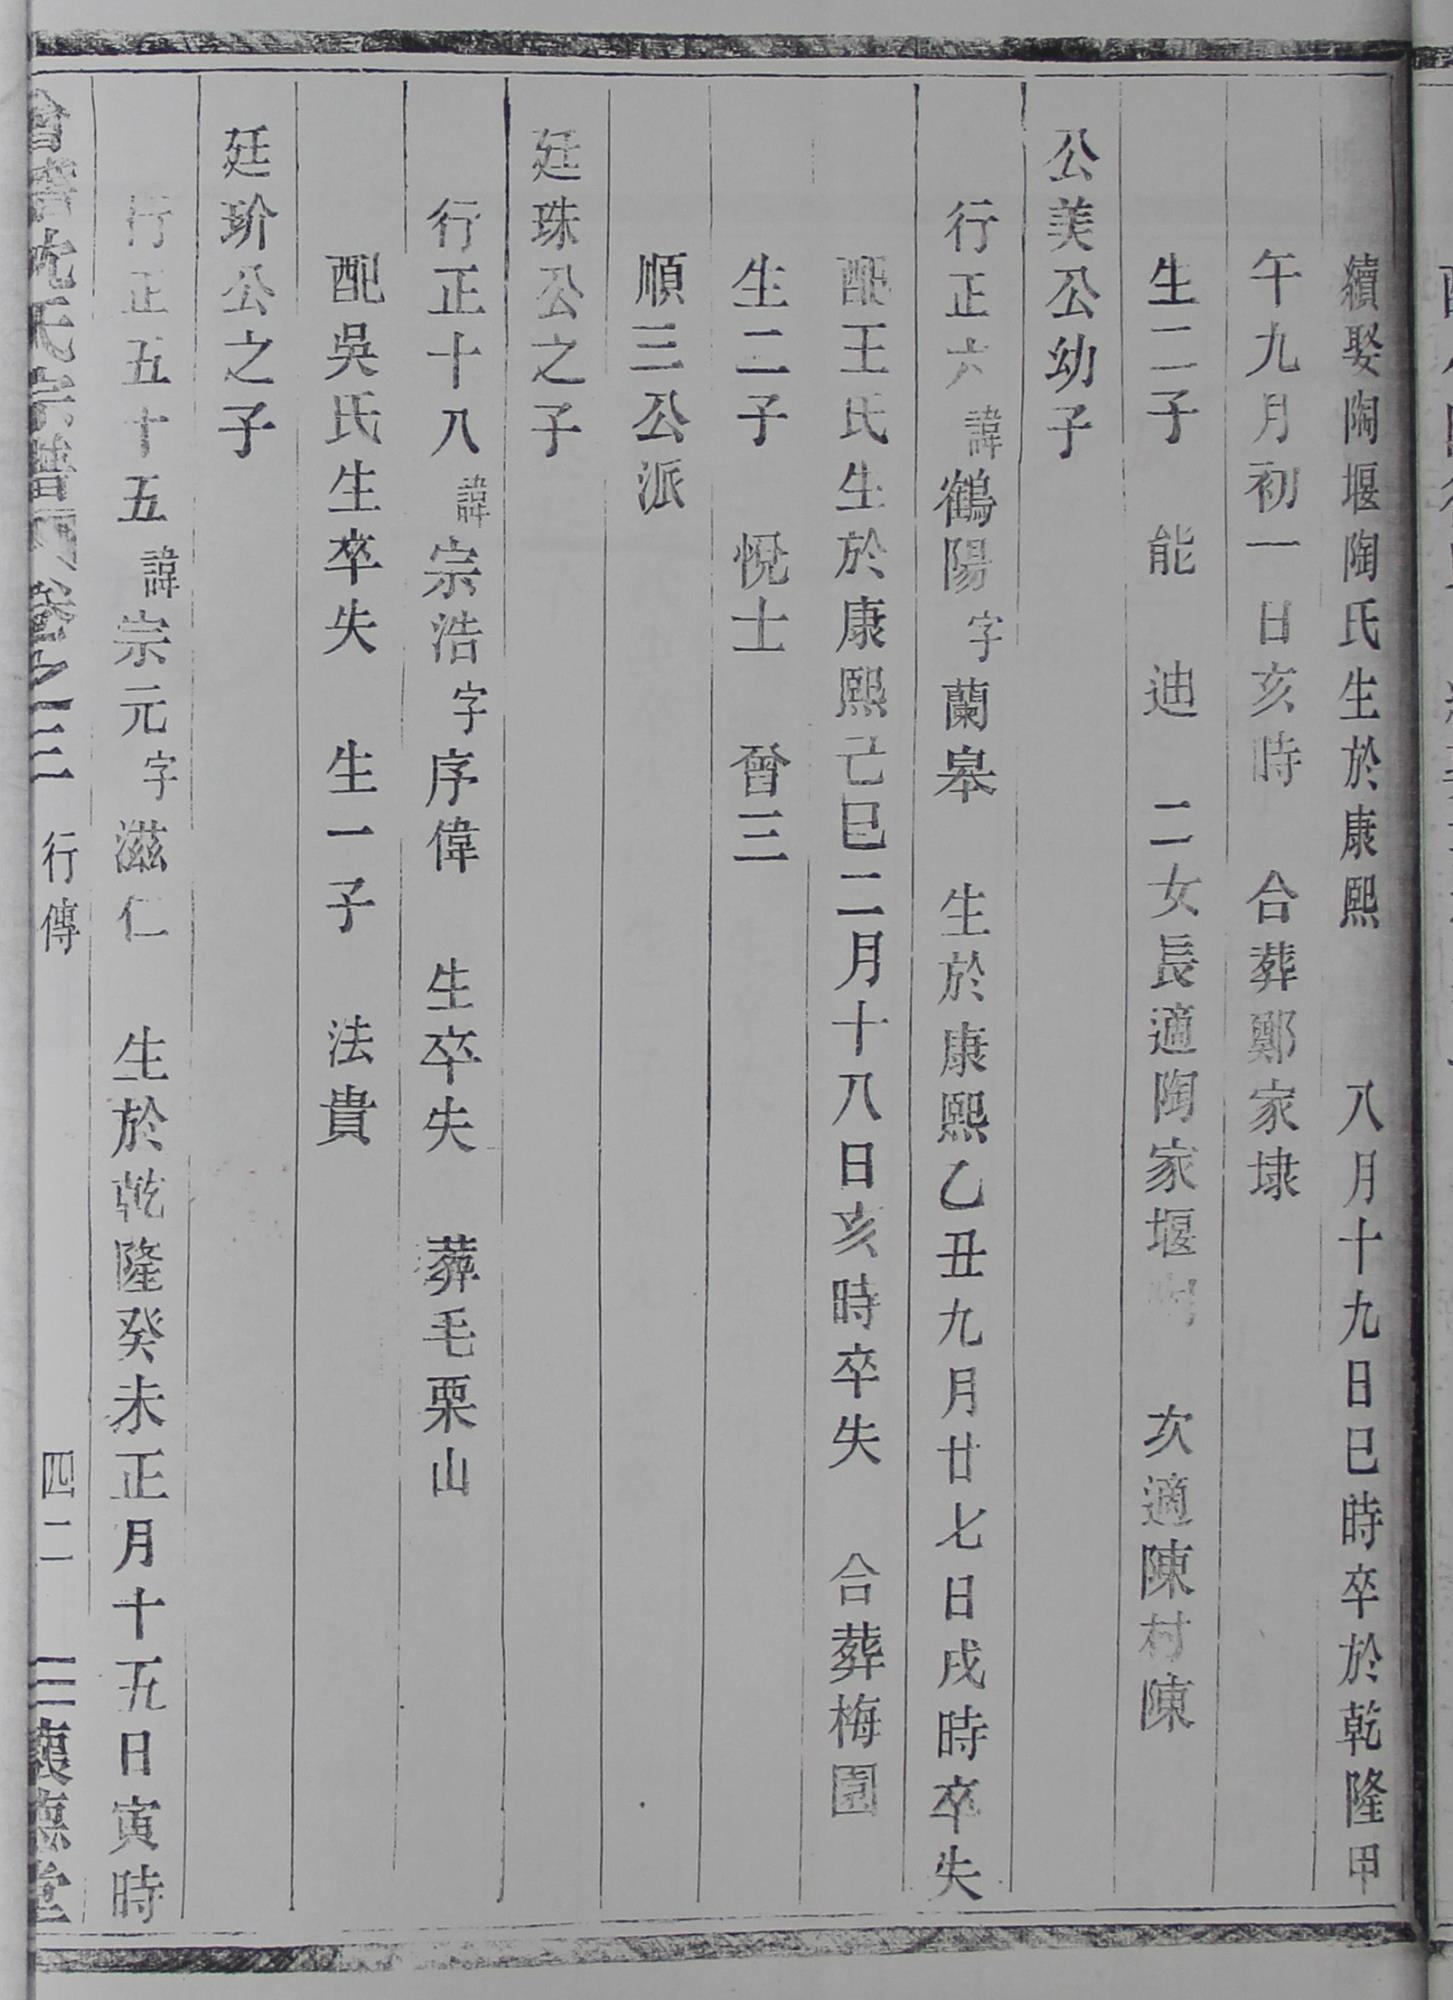 續娶陶堰陶氏生於康熙 八月十九日巳時卒於乾隆甲
午九月初一日亥時 合葬鄭家埭
生二子 能 迪 二女長適陶家堰 次適陳村陳
公美公幼子
行正六諱鶴陽字蘭皋 生於康熙乙丑九月廿七日戌時卒失
配王氏生於康熙己巳二月十八日亥時卒失 合葬梅園
生二子 悅士 曾三
順三公派
廷珠公之子
行正十八諱宗浩字序偉 生卒失 葬毛栗山
配吳氏生卒失 生一子 法貴
廷玠公之子
行正五十五諱宗元字滋仁 生於乾隆癸未正月十五日寅時
會稽 沈氏宗譜 卷之三 行傳 四二 三懷德堂